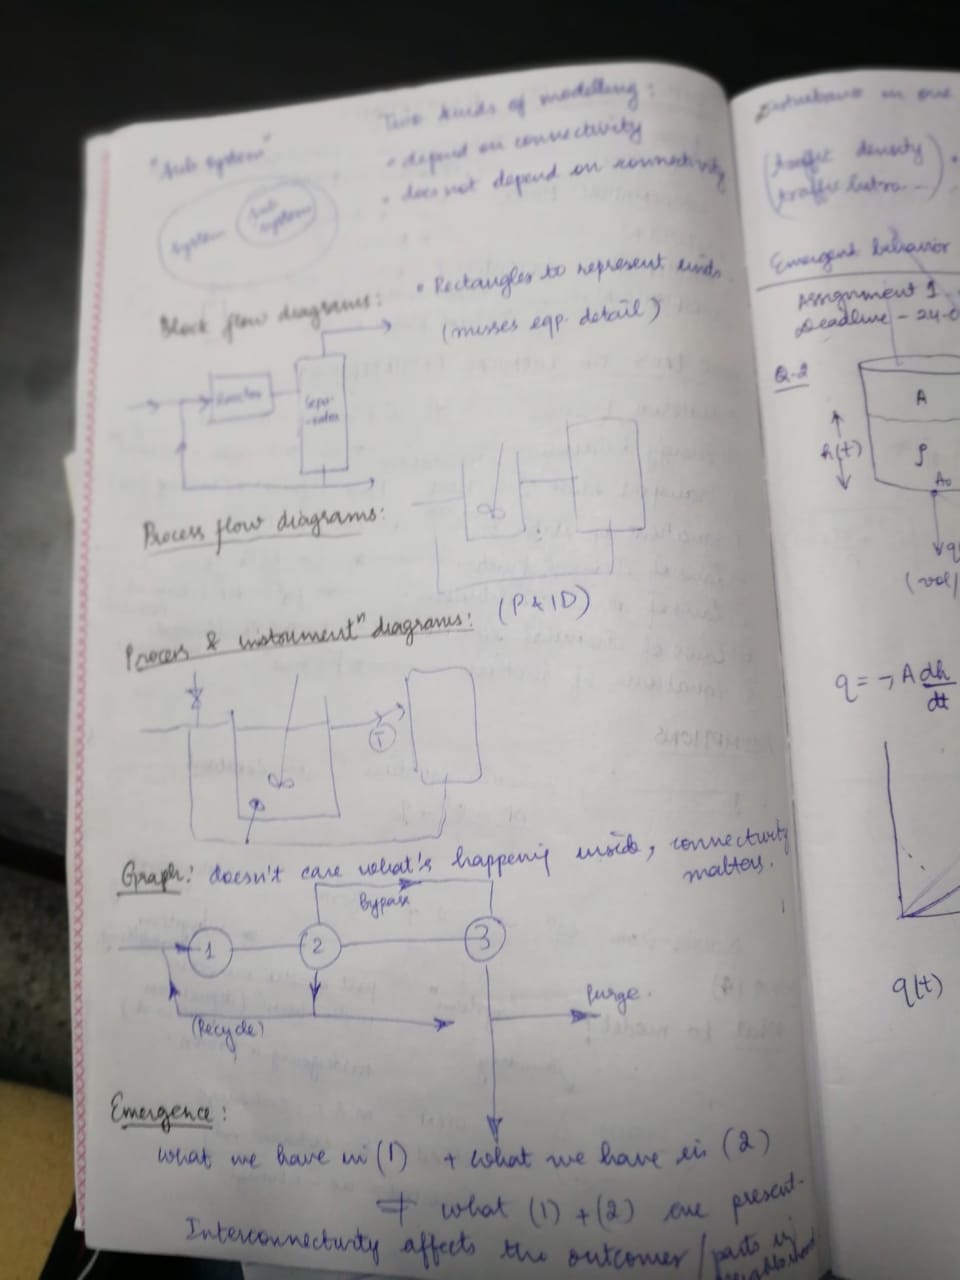 "Sub system"
System
Sub
system
Two kinds of modelling:
• depend on connectivity
• does not depend on connectivity
Block flow diagrams:
• Rectangles to represent units
(misses eqp. detail)
Reactor
Sepa-
-rator
Process flow diagrams:
Process & instrumentⁿ diagrams:
(P & ID)
T
Graph: doesn't care what's happening inside, connectivity
matters.
Bypass
1
2
3
(Recycle)
Purge.
Emergence:
what we have in (1) + what we have in (2)
≠ what (1) + (2) are present.
Interconnectivity affects the outcomes / parts in
Disturbance in one
(traffic density
traffic
Emergent behavior
Assignment 1
Deadline – 24-0
Q-2
A
h(t)
ρ
A₀
q
(vol/
q = -A dh/dt
q(t)